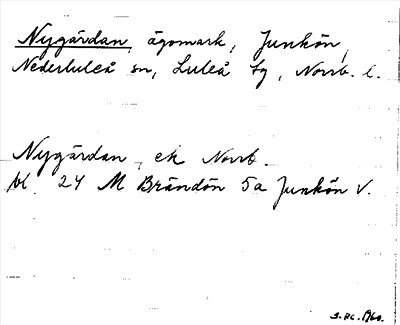 Nygårdan, ägomark, Junkön,
Nederluleå sn, Luleå tg, Norrb. l.
Nygårdan, ek Norrb.
bl. 24 M Brändön 5a Junkön V.
1960.